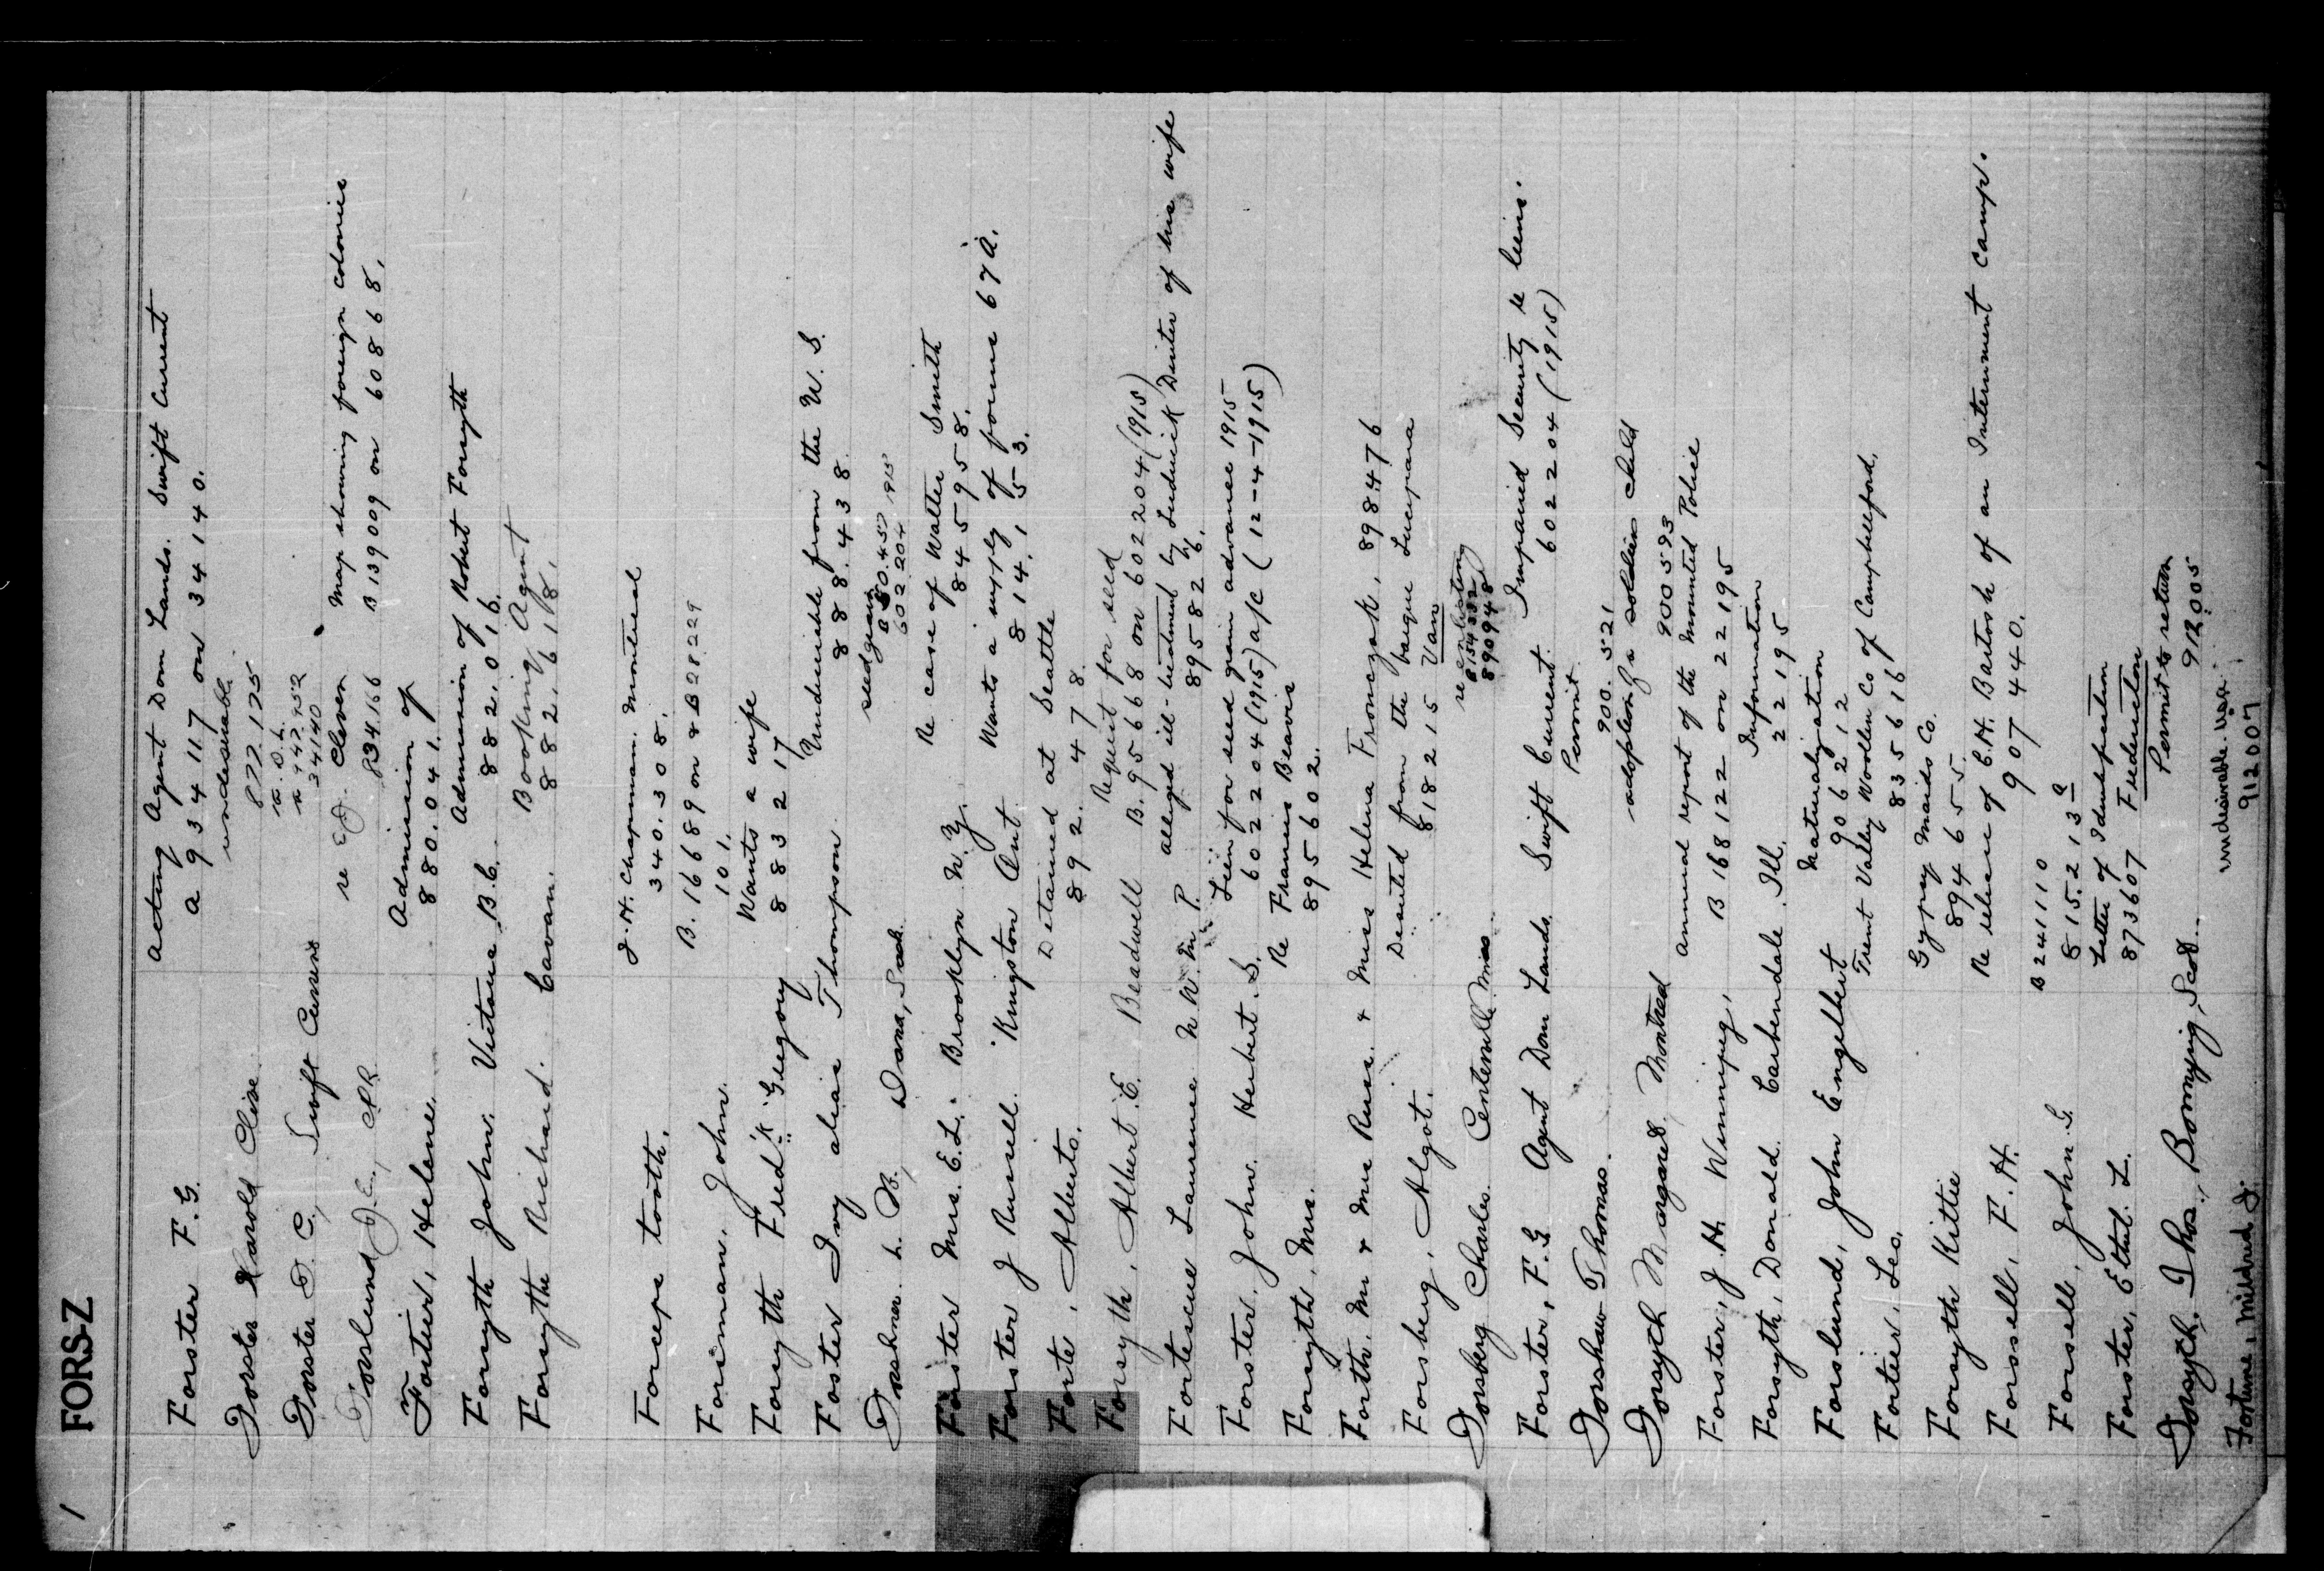 1 FORS-Z
Forster F. G. Acting Agent Dom Lands. Swift Current
a 934117 on 34140.
Forster Harold Clive undesirable
877.125
Forster F. C., Swift Current
a 947952
34140
Forslund J. E., CPR re Cleven Map showing foreign colonies
834166 B 139009 on 60868.
Fortier, Helene. Admission of
880.041.
Forsyth John. Victoria B.C. Admission of Robert Forsyth
882.016.
Forsyth Richard. Cavan. Booking Agent
882.618.
Forceps tooth. J. H. Chapman. Montreal
340.308.
Foreman, John. B. 16689 on & B 28229
101.
Forsyth Fred'k Gregory Wants a wife
883217
Foster Ivy alias Thompson. Undesirable from the U. S.
888.438.
Forshner. L. B., Dana, Sask. seedgrain
602204 1915
Forster Mrs. E. L. Brooklyn N. Y. Re case of Walter Smith
845958.
Forster J Russell. Kingston Ont. Wants a supply of forms 67 A.
814.153.
Forte, Alberto. Detained at Seattle
892.478.
Forsyth, Albert E. Beadwell Request for seed
B. 95668 on 602204 (1915)
Fortescue Laurence N W. M. P. alleged ill-treatment by Ludwick Dinter of his wife
895826.
Forster, John Herbert S. Lien for seed grain advance 1915
602204 (1915) a/c (12-4-1915)
Forsyth, Mrs. Re Francis Beavis
895602.
Forth. Mr & Mrs Russ. & Miss Helena Fronczak, 898476
Forsberg, Algot. Deserted from the barque Lucipara
818215 Van
Forsberg Charles Centerville Minn re enlisting
8154332
890948
Forster, F. G Agent Dom Lands Swift Current. Impaired Security re liens.
602204 (1915)
Forshaw Thomas. Permit
900.521
Forsyth Margaret Montreal adoption of a soldiers child
900593
Forster, J. H. Winnipeg, annual report of the Mounted Police
B 168122 on 22195
Forsyth, Donald. Carbendale Ill. Information
22195
Forslund, John Engelbert Naturalization
906212
Fortier, Leo. Trent Valley Woollen Co of Campbellford,
835616
Forsyth Kittie Gypsy Maids Co.
894655.
Forssell, F. H. Re release of E. H. Bartosh of an Internment Camp.
907440.
Forsell, John G. B 241110
815.213 a
Forster, Ethel. L. Letter of Identification
873607 Fredericton
Forsyth, Thos., Bornying, Scot. Permit to return
912005
Fortune, Mildred J. undesirable
912007